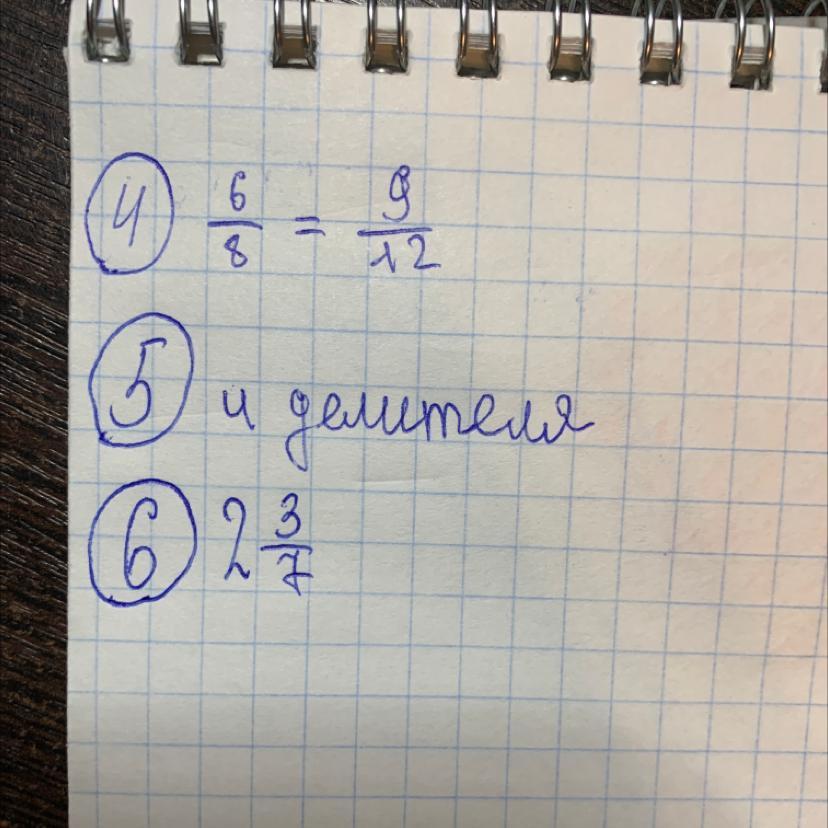 ④ 6/8 = 9/12
⑤ и делителя
⑥ 2 3/7